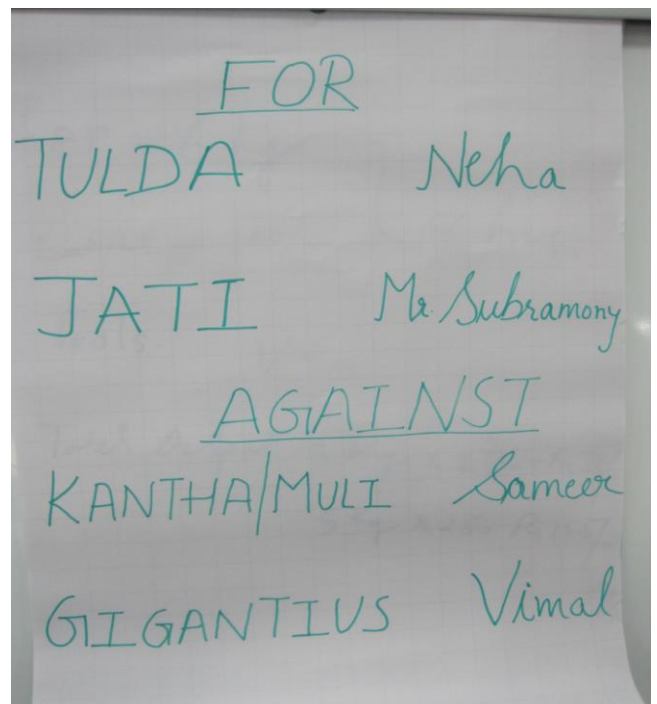 FOR
TULDA Neha
JATI Mr. Subramony
AGAINST
KANTHA/MULI Sameer
GIGANTIUS Vimal